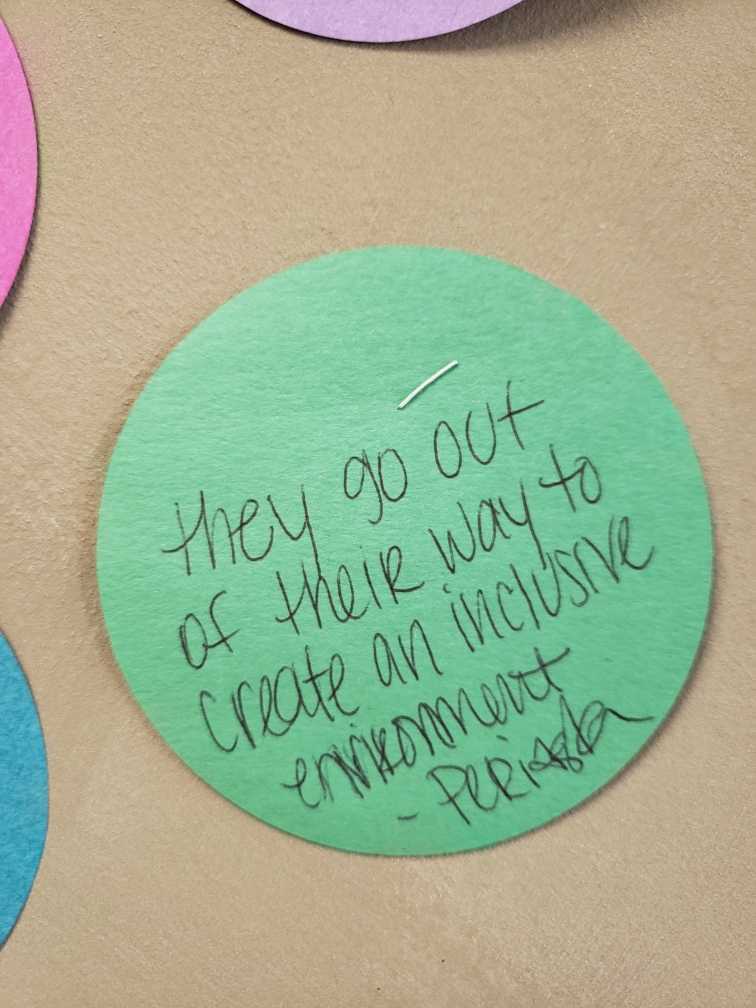 they go out
of their way to
create an inclusive
environment
-